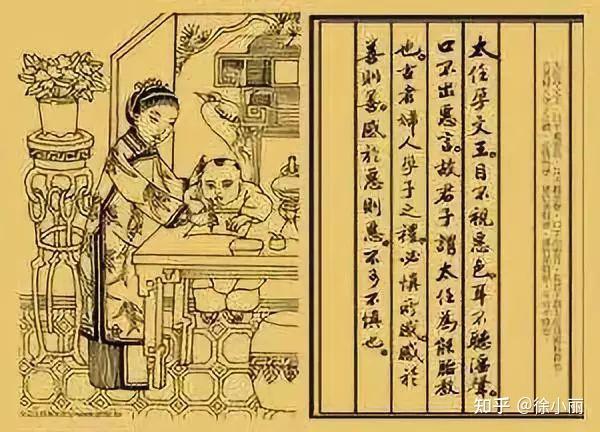 太任孕文王。目不視惡色。耳不聽淫聲。
口不出惡言。故君子謂太任為能胎教
也。古者婦人孕子之禮。必慎所感。感於
善則善。感於惡則惡。不可不慎也。
知乎 @徐小丽